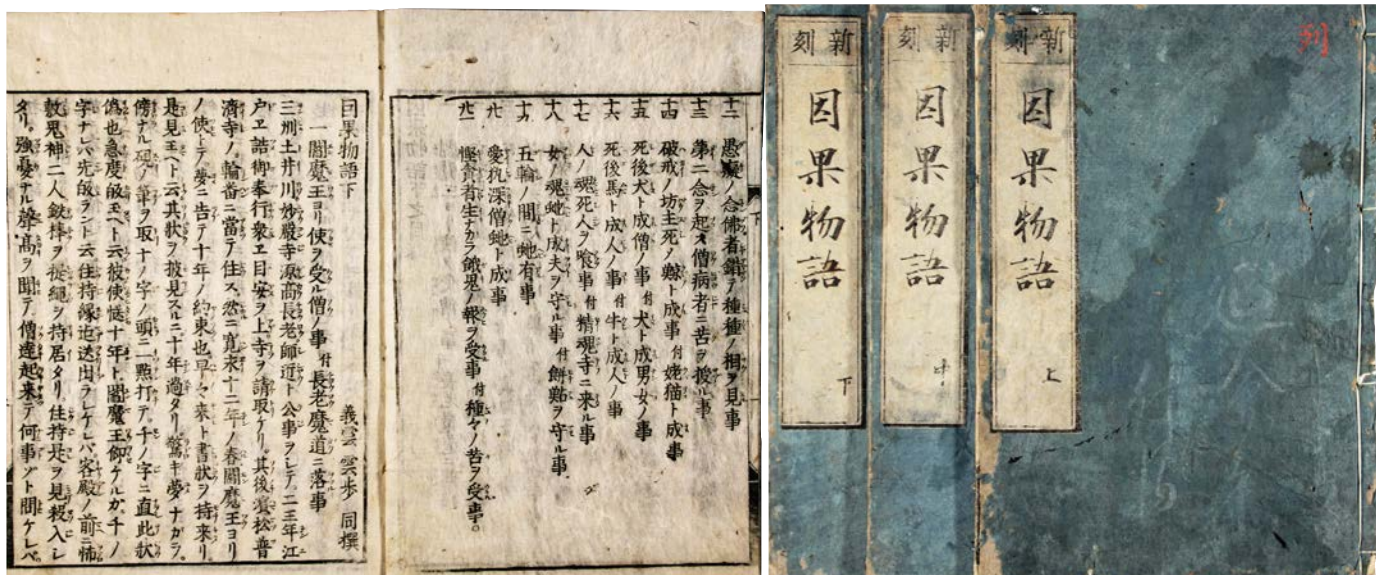 十二 愚癡ノ念佛者錯テ種種ノ相ヲ見事
十三 第二念ヲ起ス僧病者ニ苦ヲ授ル事
十四 破戒ノ坊主死メ鯨ト成事 付姥猫ト成事
十五 死後犬ト成僧ノ事 付犬ト成男女ノ事
十六 死後馬ト成人ノ事 付牛ト成人ノ事
十七 人ノ魂死人ヲ喰事 付精魂寺ニ来ル事
十八 女ノ魂虵ト成夫ヲ守ル事 付餅ヲ守ル事
五輪ノ間ニ虵有事
愛執深僧虵ト成事
慳貪者生ナカラ餓鬼ノ報ヲ受事 付種々ノ苦ヲ受事。
下
因果物語下
義雲雲歩同撰
一閻魔王ヨリ使ヲ受ル僧ノ事 付長老魔道ニ落事
三州土井川妙嚴寺源高長老師匠ト公事ヲシテ二三年江
戸エ詰御奉行衆エ目安ヲ上寺ヲ請取ケリ。其後濱松普
濟寺ノ輪番ニ當テ住ス然ニ寛永十二年ノ春閻魔王ヨリ
ノ使トテ夢ニ告テ十年ノ約束也早々来ト書狀ヲ持来リ
是見玉ヘト云其狀ヲ披見スルニ十年過タリ。驚キ夢ナカラ。
傍ナル硯ノ筆ヲ取十ノ字ノ頭ニ一點打テ千ノ字ニ直此狀
偽也急度皈玉ヘト云彼使慥十年ト閻魔王仰ケルカ。千ノ
字ナレバ先皈ラント云住持縁迄送出ラレケレバ客殿ノ前ニ怖
敷鬼神二人鉄棒ヲ提繩ヲ持居タリ。住持是ヲ見殺入レ
タリ。強憂ナル聲高ヲ聞テ僧達起来テ何事ゾト問ケレバ。
新刻
因果物語
上
新刻
因果物語
中
新刻
因果物語
下